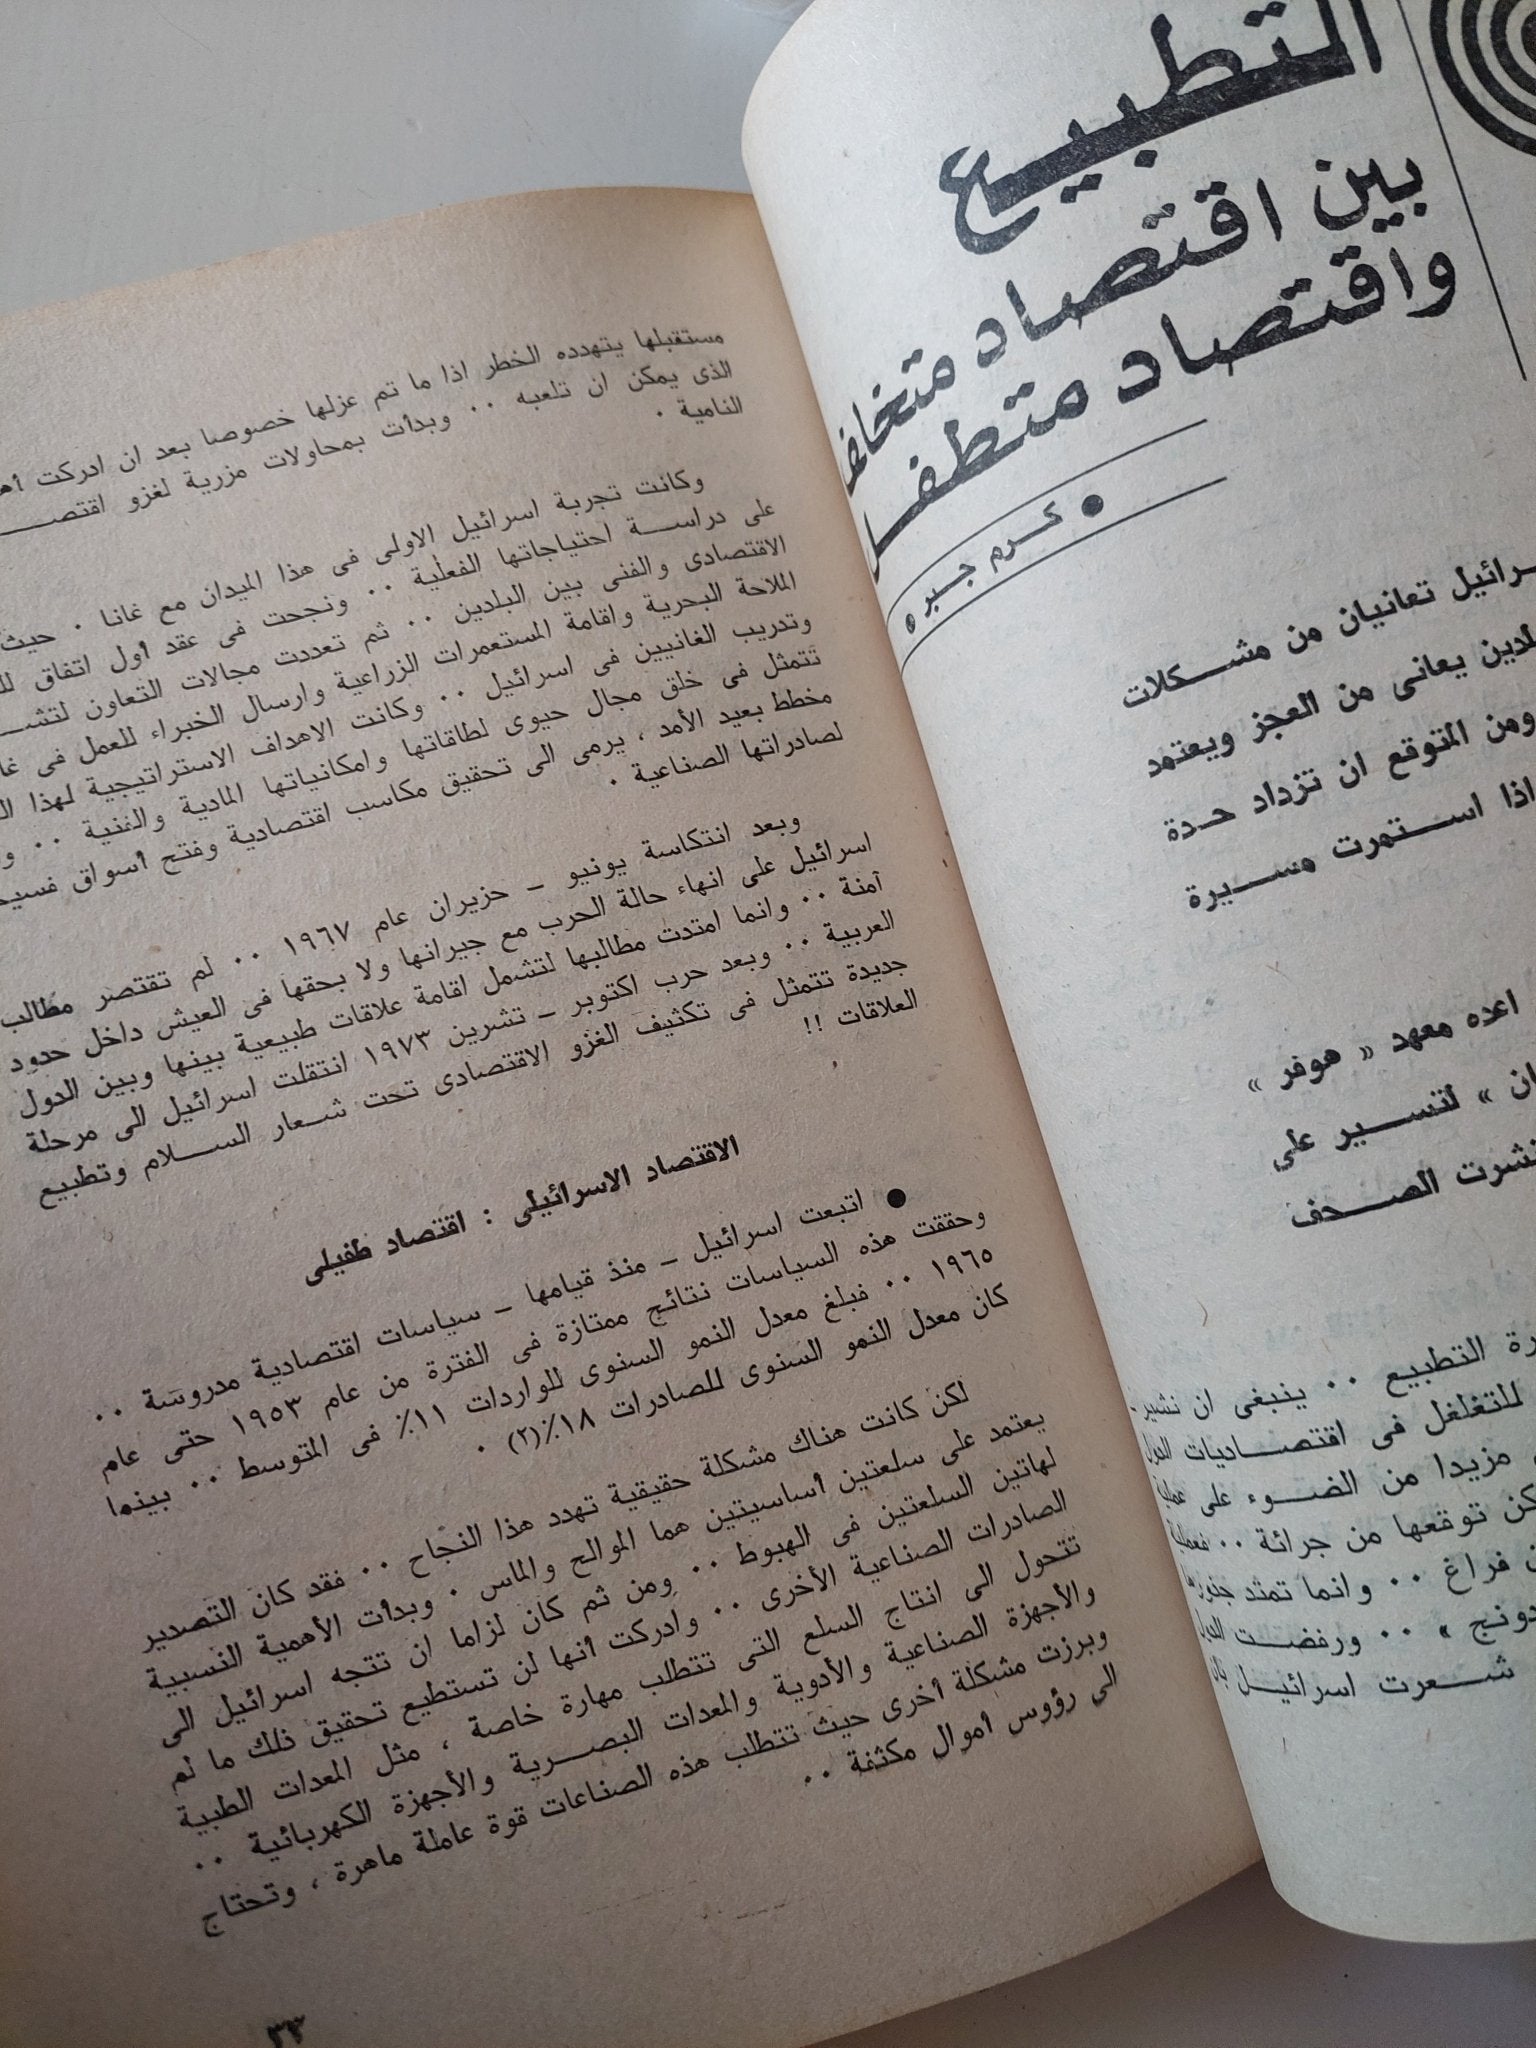 التطبيع
بين اقتصاد متخلف
واقتصاد متطفل
● كرم جبر ●
رائيل تعانيان من مشكلات
لدين يعانى من العجز ويعتمد
ومن المتوقع ان تزداد حدة
اذا استمرت مسيرة
اعده معهد « هوفر »
ان » لتسير على
نشرت الصحف
رة التطبيع .. ينبغى ان نشير
للتغلغل فى اقتصاديات الدول
مزيدا من الضوء على عملية
كن توقعها من جرائة .. فعملية
ن فراغ .. وانما تمتد جذورها
دونج » .. ورفضت الدول
شعرت اسرائيل بان
مستقبلها يتهدده الخطر اذا ما تم عزلها خصوصا بعد ان ادركت أه
الذى يمكن ان تلعبه .. وبدأت بمحاولات مزرية لغزو اقتصـ
النامية .
وكانت تجربة اسرائيل الاولى فى هذا الميدان مع غانا . حيث
على دراسة احتياجاتها الفعلية .. ونجحت فى عقد أول اتفاق لل
الاقتصادى والفنى بين البلدين .. ثم تعددت مجالات التعاون لتشـ
الملاحة البحرية واقامة المستعمرات الزراعية وارسال الخبراء للعمل فى غا
وتدريب الغانيين فى اسرائيل .. وكانت الاهداف الاستراتيجية لهذا ال
تتمثل فى خلق مجال حيوى لطاقاتها وامكانياتها المادية والفنية .. و
مخطط بعيد الأمد ، يرمى الى تحقيق مكاسب اقتصادية وفتح أسواق فسيح
لصادراتها الصناعية .
وبعد انتكاسة يونيو – حزيران عام ١٩٦٧ .. لم تقتصر مطالب
اسرائيل على انهاء حالة الحرب مع جيرانها ولا بحقها فى العيش داخل حدود
آمنة .. وانما امتدت مطالبها لتشمل اقامة علاقات طبيعية بينها وبين الدول
العربية .. وبعد حرب اكتوبر – تشرين ١٩٧٣ انتقلت اسرائيل الى مرحلة
جديدة تتمثل فى تكثيف الغزو الاقتصادى تحت شعار السلام وتطبيع
العلاقات !!
الاقتصاد الاسرائيلى : اقتصاد طفيلى
● اتبعت اسرائيل – منذ قيامها – سياسات اقتصادية مدروسة ..
وحققت هذه السياسات نتائج ممتازة فى الفترة من عام ١٩٥٣ حتى عام
١٩٦٥ .. فبلغ معدل النمو السنوى للواردات ١١٪ فى المتوسط .. بينما
كان معدل النمو السنوى للصادرات ١٨٪(٢) .
لكن كانت هناك مشكلة حقيقية تهدد هذا النجاح .. فقد كان التصدير
يعتمد على سلعتين أساسيتين هما الموالح والماس . وبدأت الأهمية النسبية
لهاتين السلعتين فى الهبوط .. ومن ثم كان لزاما ان تتجه اسرائيل الى
الصادرات الصناعية الأخرى .. وادركت أنها لن تستطيع تحقيق ذلك ما لم
تتحول الى انتاج السلع التى تتطلب مهارة خاصة ، مثل المعدات الطبية
والأجهزة الصناعية والأدوية والمعدات البصرية والأجهزة الكهربائية ..
وبرزت مشكلة أخرى حيث تتطلب هذه الصناعات قوة عاملة ماهرة ، وتحتاج
الى رؤوس أموال مكثفة ..
٣٣